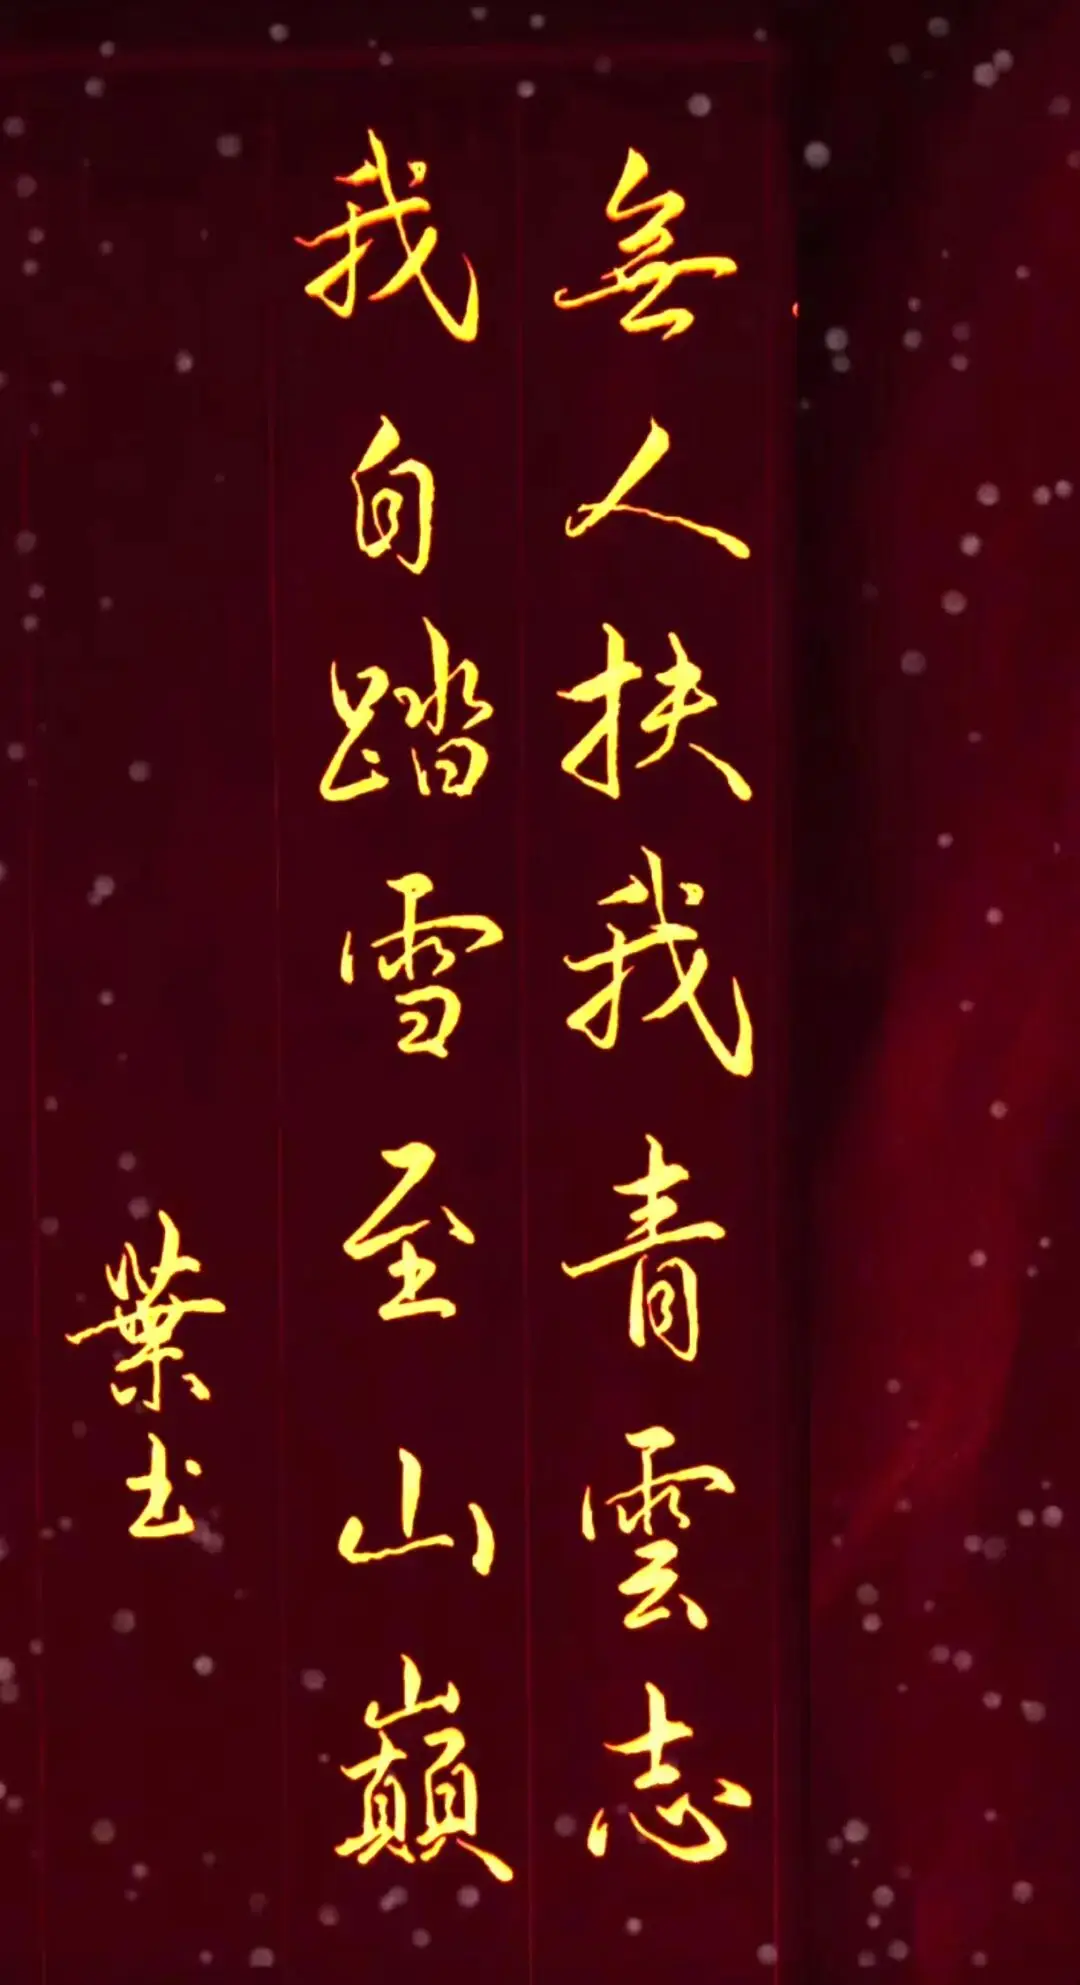 無人扶我青雲志
我自踏雪至山巔
葉书